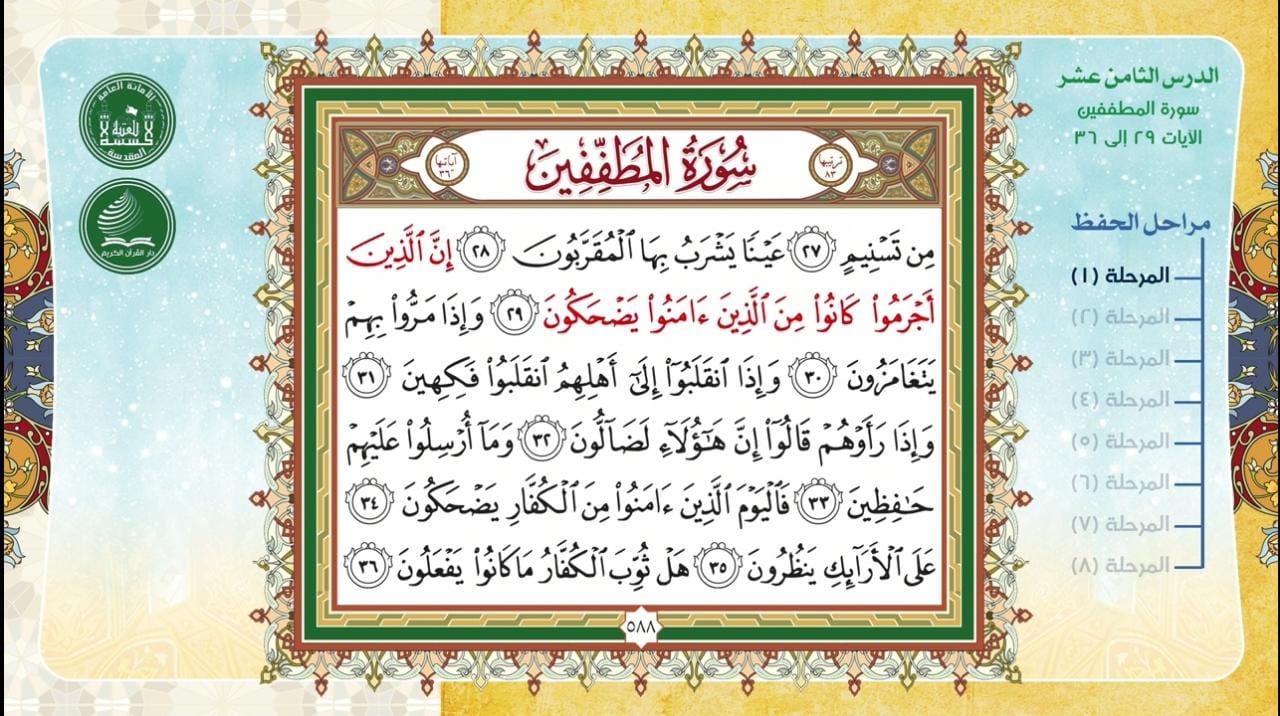 الدرس الثامن عشر
سورة المطففين
الآيات ٢٩ إلى ٣٦
مراحل الحفظ
المرحلة (١)
المرحلة (٢)
المرحلة (٣)
المرحلة (٤)
المرحلة (٥)
المرحلة (٦)
المرحلة (٧)
المرحلة (٨)
ترتيبها ٨٣
سُورَةُ المُطَفِّفِينَ
آياتها ٣٦
مِن تَسْنِيمٍ ٢٧ عَيْنًا يَشْرَبُ بِهَا ٱلْمُقَرَّبُونَ ٢٨ إِنَّ ٱلَّذِينَ
أَجْرَمُوا۟ كَانُوا۟ مِنَ ٱلَّذِينَ ءَامَنُوا۟ يَضْحَكُونَ ٢٩ وَإِذَا مَرُّوا۟ بِهِمْ
يَتَغَامَزُونَ ٣٠ وَإِذَا ٱنقَلَبُوٓا۟ إِلَىٰٓ أَهْلِهِمُ ٱنقَلَبُوا۟ فَكِهِينَ ٣١
وَإِذَا رَأَوْهُمْ قَالُوٓا۟ إِنَّ هَٰٓؤُلَآءِ لَضَآلُّونَ ٣٢ وَمَآ أُرْسِلُوا۟ عَلَيْهِمْ
حَٰفِظِينَ ٣٣ فَٱلْيَوْمَ ٱلَّذِينَ ءَامَنُوا۟ مِنَ ٱلْكُفَّارِ يَضْحَكُونَ ٣٤
عَلَى ٱلْأَرَآئِكِ يَنظُرُونَ ٣٥ هَلْ ثُوِّبَ ٱلْكُفَّارُ مَا كَانُوا۟ يَفْعَلُونَ ٣٦
٥٨٨
الأمانة العامة
للعتبة
الحسينية
المقدسة
دار القرآن الكريم